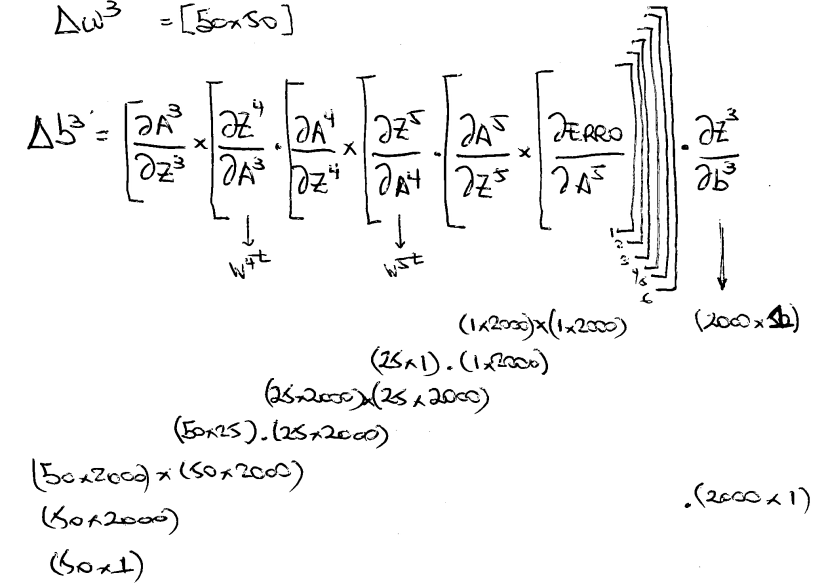 Δw³ = [50×50]
Δb³ = [∂A³/∂Z³ × [∂Z⁴/∂A³ · [∂A⁴/∂Z⁴ × [∂Z⁵/∂A⁴ · [∂A⁵/∂Z⁵ × [∂ERRO/∂A⁵]]]]]] · ∂Z³/∂b³
1
2
3
4 5
6
W⁴ᵗ W⁵ᵗ
(1×2000)×(1×2000) (2000×1)
(25×1).(1×2000)
(25×2000)×(25×2000)
(50×25).(25×2000)
(50×2000)×(50×2000)
(50×2000) .(2000×1)
(50×1)